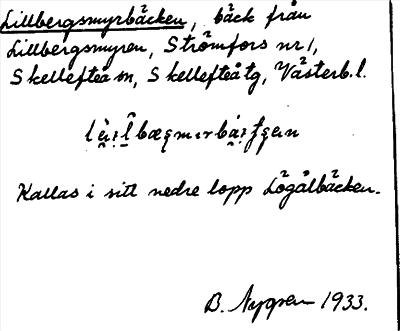 Lillbergsmyrbäcken, bäck från
Lillbergsmyren, Strömfors nr 1,
Skellefteå sn, Skellefteå tg, Västerb. l.
Kallas i sitt nedre lopp Lögålbäcken.
B. Nygren 1933.